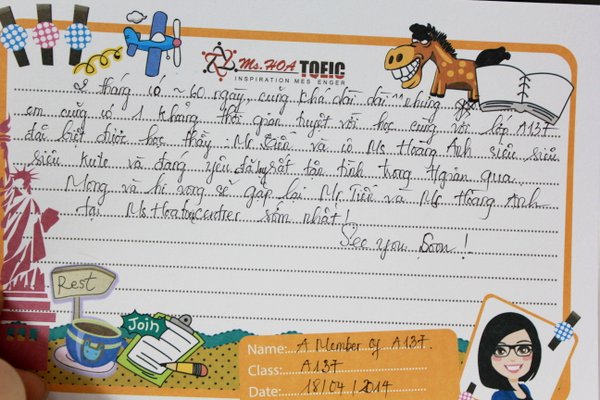 Ms.HOA TOEIC
INSPIRATION MESSENGER
2 tháng có ~60 ngày, cũng khá dài dài ^^ nhưng
em cũng có 1 khoảng thời gian tuyệt vời học cùng với lớp A137
đặc biệt được học thầy Mr. Tiến và cô Ms Hoàng Anh siêu siêu
siêu kute và đáng yêu đã nhất tận tình trong tgian qua.
Mong và hi vọng sẽ gặp lại Mr. Tiến và Ms Hoàng Anh
tại Ms.Hoa sớm nhất!
See you soon!
Rest
Join
Name: A Member of A137.
Class: A137
Date: 18/04/2014